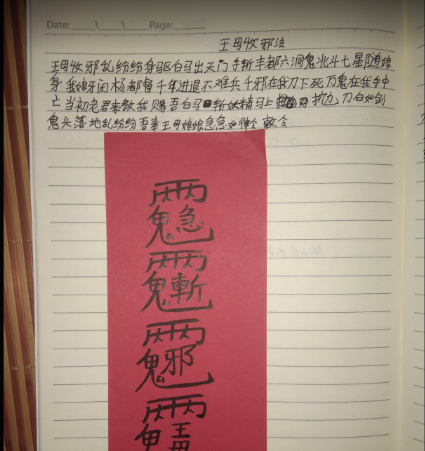 Date: \ \ Page:
王母收邪法
王母收邪乱纷纷身驱白马出天门手斩丰都六洞鬼北斗七星随娘
身 我娘牙闲杨都督千年进退不难兵千邪在我刀下死万鬼在我手中
亡当初老君来教我赐吾白马斩妖精马上 刀白如剑
鬼头落地乱纷纷吾奉王母娘娘急急如律令 敕令
急
鬼
斩
鬼
邪
鬼
王母
鬼